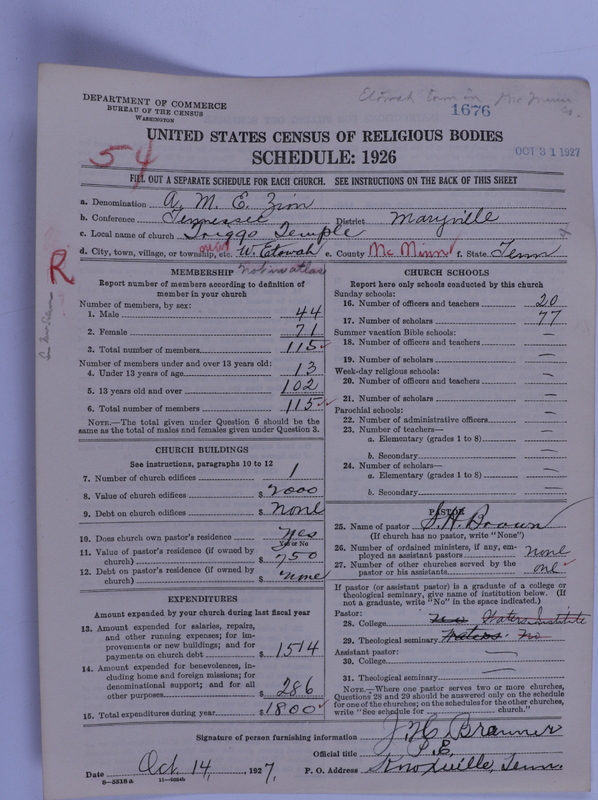 Etowah town in McMinn Co.
DEPARTMENT OF COMMERCE
BUREAU OF THE CENSUS
WASHINGTON
1676
UNITED STATES CENSUS OF RELIGIOUS BODIES
SCHEDULE: 1926
OCT 31 1927
54
FILL OUT A SEPARATE SCHEDULE FOR EACH CHURCH. SEE INSTRUCTIONS ON THE BACK OF THIS SHEET
a. Denomination A. M. E. Zion
b. Conference Tennessee District Maryville
c. Local name of church Triggs Temple
d. City, town, village, or township, etc. W. Etowah e. County McMinn f. State Tenn
R
MEMBERSHIP not in atlas
Report number of members according to definition of member in your church
Number of members, by sex:
1. Male 44
2. Female 71
3. Total number of members 115
Number of members under and over 13 years old:
4. Under 13 years of age 13
5. 13 years old and over 102
6. Total number of members 115
NOTE.—The total given under Question 6 should be the same as the total of males and females given under Question 3.
CHURCH BUILDINGS
See instructions, paragraphs 10 to 12
7. Number of church edifices 1
8. Value of church edifices $ 2000
9. Debt on church edifices $ none
10. Does church own pastor's residence? yes
Yes or No
11. Value of pastor's residence (if owned by church) $ 750
12. Debt on pastor's residence (if owned by church) $ none
EXPENDITURES
Amount expended by your church during last fiscal year
13. Amount expended for salaries, repairs, and other running expenses; for improvements or new buildings; and for payments on church debt $ 1514
14. Amount expended for benevolences, including home and foreign missions; for denominational support; and for all other purposes $ 286
15. Total expenditures during year $ 1800
CHURCH SCHOOLS
Report here only schools conducted by this church
Sunday schools:
16. Number of officers and teachers 20
17. Number of scholars 77
Summer vacation Bible schools:
18. Number of officers and teachers —
19. Number of scholars —
Week-day religious schools:
20. Number of officers and teachers —
21. Number of scholars —
Parochial schools:
22. Number of administrative officers —
23. Number of teachers—
a. Elementary (grades 1 to 8) —
b. Secondary —
24. Number of scholars—
a. Elementary (grades 1 to 8) —
b. Secondary —
PASTOR
25. Name of pastor S. H. Brown
(If church has no pastor, write "None")
26. Number of ordained ministers, if any, employed as assistant pastors none
27. Number of other churches served by the pastor or his assistants one
If pastor (or assistant pastor) is a graduate of a college or theological seminary, give name of institution below. (If not a graduate, write "No" in the space indicated.)
Pastor:
28. College no Waters Institute
29. Theological seminary Waters No
Assistant pastor:
30. College —
31. Theological seminary —
NOTE.—Where one pastor serves two or more churches, Questions 28 and 29 should be answered only on the schedule for one of the churches; on the schedules for the other churches, write "See schedule for church."
Signature of person furnishing information J. H. Branner
Official title P. E.
Date Oct. 14, 1927, P. O. Address Knoxville, Tenn.